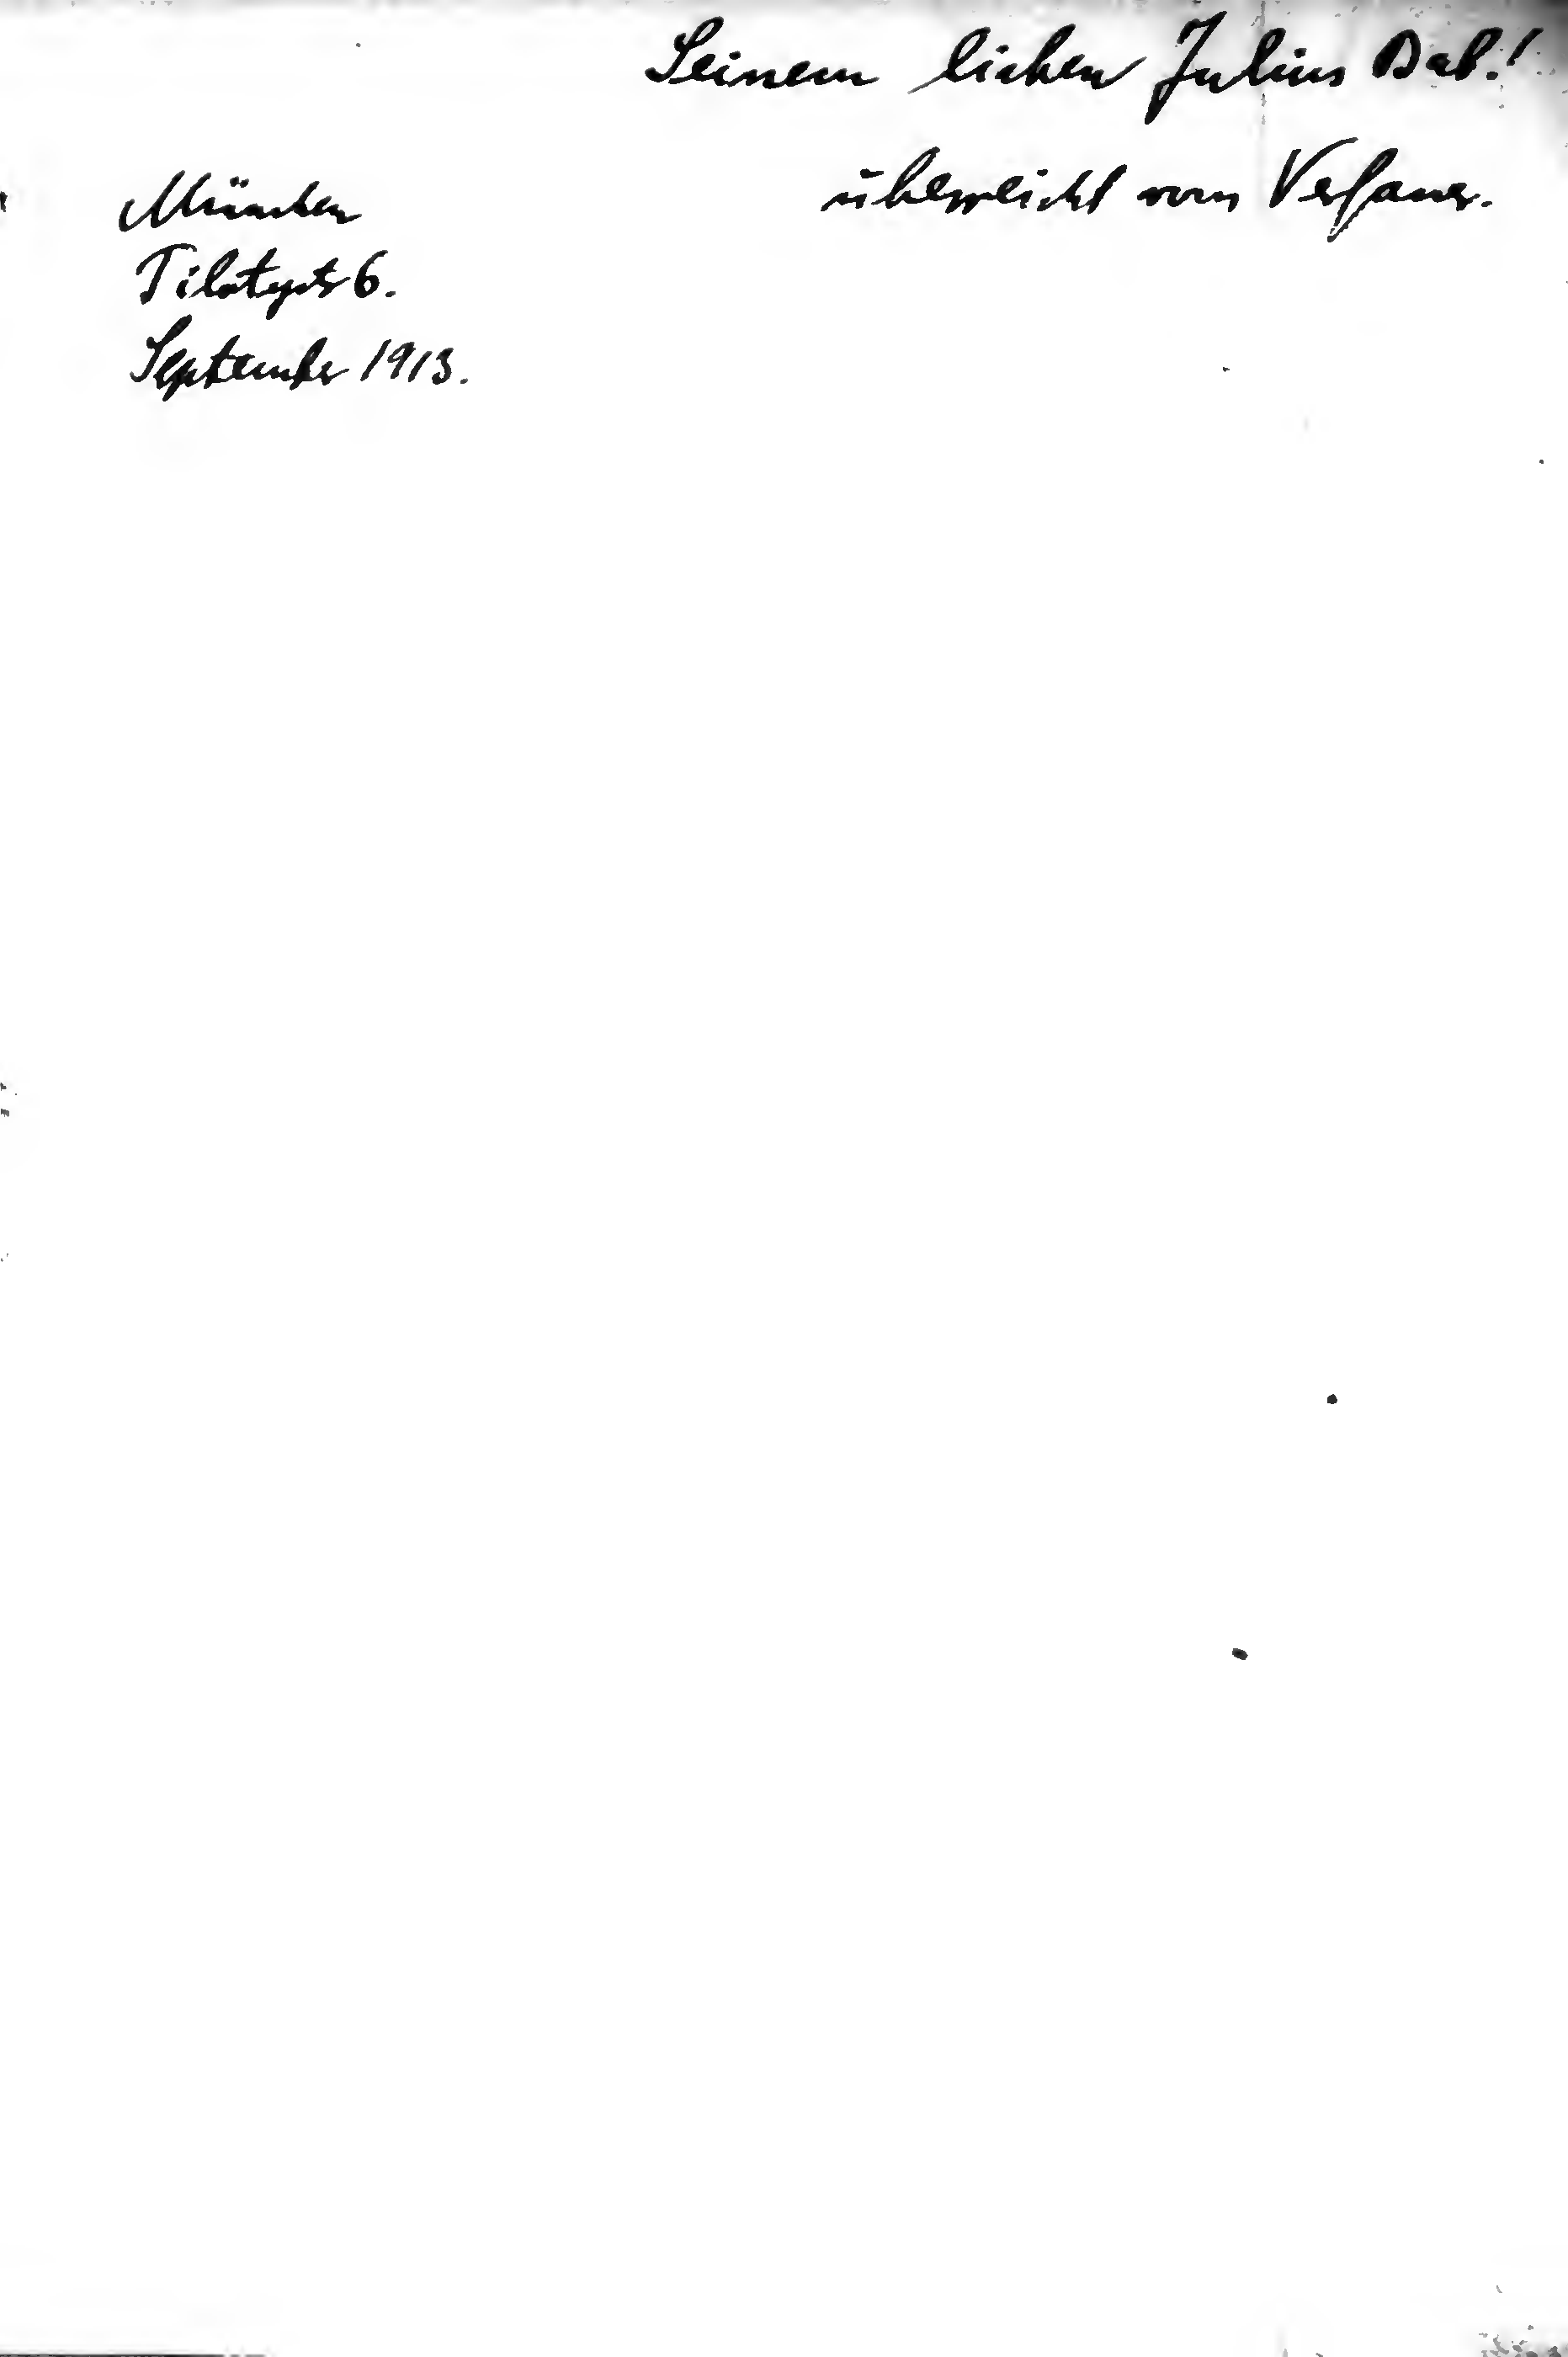 Seinem lieben Julius Bab!
überreicht vom Verfasser.
München
6.
September 1913.